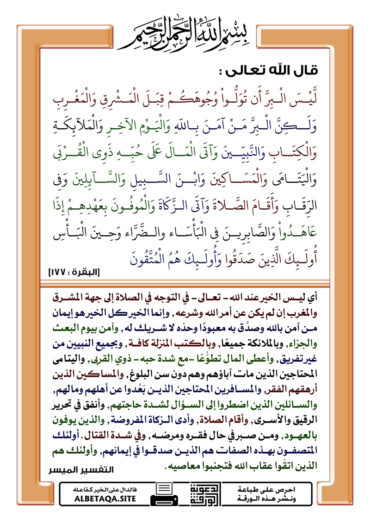 بِسْمِ اللَّهِ الرَّحْمَٰنِ الرَّحِيمِ
قال الله تعالى :
لَّيْسَ الْبِرَّ أَن تُوَلُّواْ وُجُوهَكُمْ قِبَلَ الْمَشْرِقِ وَالْمَغْرِبِ
وَلَـكِنَّ الْبِرَّ مَنْ آمَنَ بِاللّهِ وَالْيَوْمِ الآخِرِ وَالْمَلآئِكَةِ
وَالْكِتَابِ وَالنَّبِيِّينَ وَآتَى الْمَالَ عَلَى حُبِّهِ ذَوِي الْقُرْبَى
وَالْيَتَامَى وَالْمَسَاكِينَ وَابْنَ السَّبِيلِ وَالسَّآئِلِينَ وَفِي
الرِّقَابِ وَأَقَامَ الصَّلاةَ وَآتَى الزَّكَاةَ وَالْمُوفُونَ بِعَهْدِهِمْ إِذَا
عَاهَدُواْ وَالصَّابِرِينَ فِي الْبَأْسَاء والضَّرَّاء وَحِينَ الْبَأْسِ
أُولَـئِكَ الَّذِينَ صَدَقُوا وَأُولَـئِكَ هُمُ الْمُتَّقُونَ
[البقرة : ١٧٧]
أي ليس الخير عند الله - تعالى - في التوجه في الصلاة إلى جهة المشرق
والمغرب إن لم يكن عن أمر الله وشرعه، وإنما الخير كل الخير هو إيمان
من آمن بالله وصدَّق به معبودًا وحدَه لا شريك له، وآمن بيوم البعث
والجزاء، وبالملائكة جميعًا، وبالكتب المنزلة كافة، وبجميع النبيين من
غير تفريق، وأعطى المال تطوُّعًا -مع شدة حبه- ذوي القربى، واليتامى
المحتاجين الذين مات آباؤهم وهم دون سن البلوغ، والمساكين الذين
أرهقهم الفقر، والمسافرين المحتاجين الذين بَعُدوا عن أهلهم ومالهم،
والسائلين الذين اضطروا إلى السؤال لشدة حاجتهم، وأنفق في تحرير
الرقيق والأسرى، وأقام الصلاة، وأدى الزكاة المفروضة، والذين يوفون
بالعهود، ومن صبر في حال فقره ومرضه، وفي شدة القتال. أولئك
المتصفون بهذه الصفات هم الذين صدقوا في إيمانهم، وأولئك هم
الذين اتقَوا عقاب الله فتجنبوا معاصيه. التفسير الميسر
احرص على طباعة
ونشر هذه الورقة
الورقة الدعوية
فالدال على الخير كفاعله
ALBETAQA.SITE